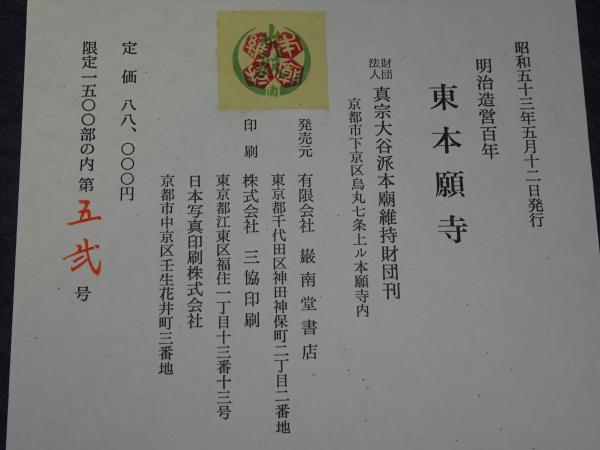 昭和五十三年五月十二日発行
明治造営百年
東本願寺
財団法人 真宗大谷派本廟維持財団刊
京都市下京区烏丸七条上ル本願寺内
発売元 有限会社 巌南堂書店
東京都千代田区神田神保町二丁目二番地
印刷 株式会社 三協印刷
東京都江東区福住一丁目十三番十三号
日本写真印刷株式会社
京都市中京区壬生花井町三番地
定価 八八、〇〇〇円
限定一五〇〇部の内 第 五弐 号